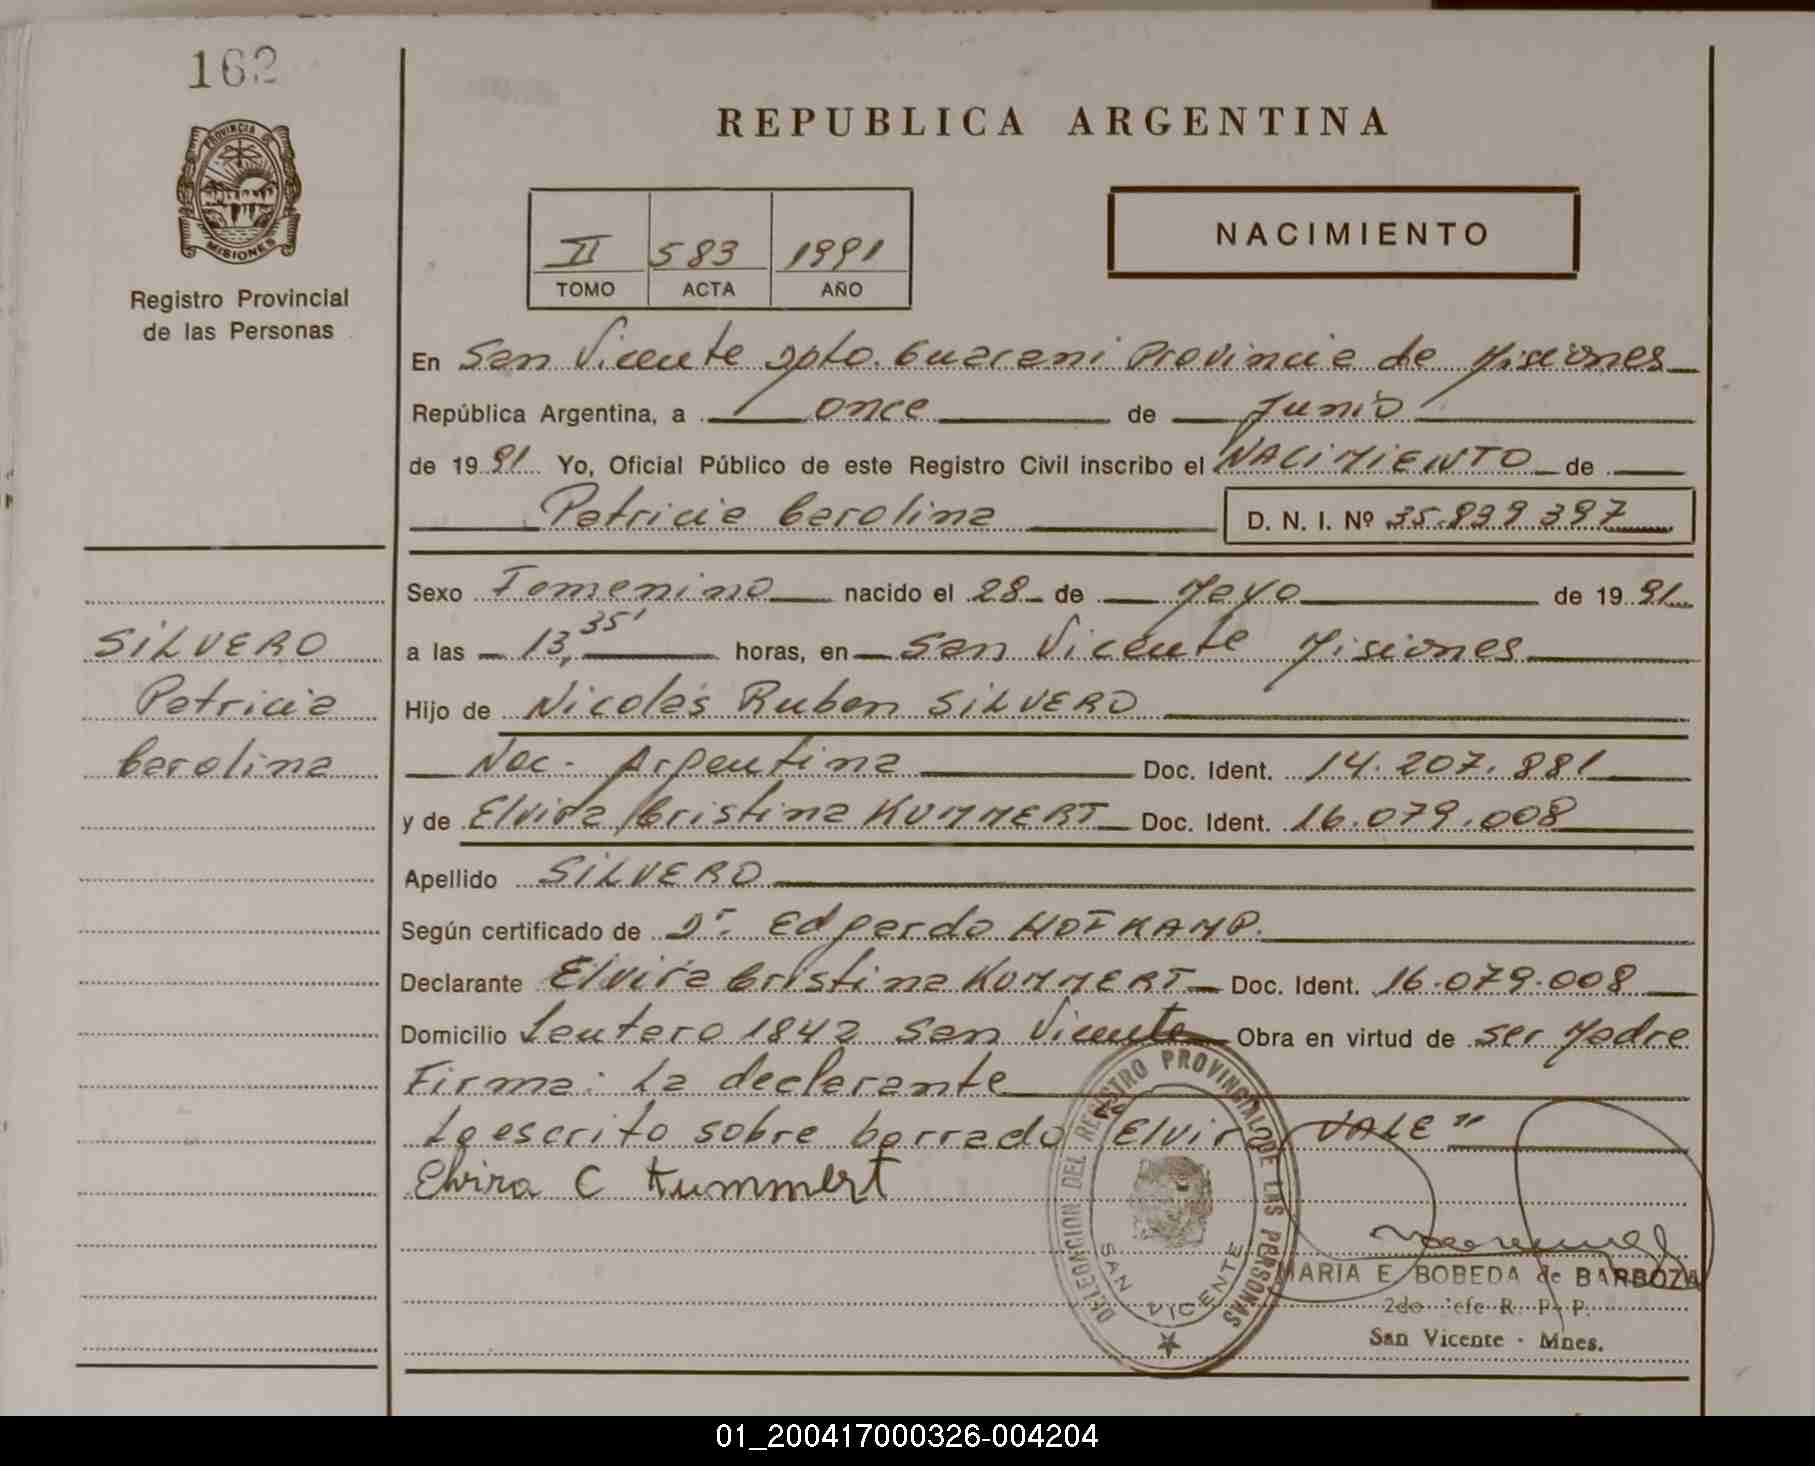 162
PROVINCIA DE
MISIONES
Registro Provincial
de las Personas
REPUBLICA ARGENTINA
II 583 1991
TOMO ACTA AÑO
NACIMIENTO
En San Vicente Dpto. Guarani Provincia de Misiones
República Argentina, a once de Junio
de 1991 Yo, Oficial Público de este Registro Civil inscribo el NACIMIENTO de
Patricia Carolina D. N. I. Nº 35.839.397
SILVERO
Patricia
Carolina
Sexo Femenino nacido el 28 de Mayo de 1991
a las 13,35' horas, en San Vicente Misiones
Hijo de Nicolás Ruben SILVERO
Nac. Argentina Doc. Ident. 14.207.881
y de Elvira Cristina KUMMERT Doc. Ident. 16.079.008
Apellido SILVERO
Según certificado de Dr. Edgardo HOFKAMP.
Declarante Elvira Cristina KUMMERT Doc. Ident. 16.079.008
Domicilio Lautero 1842 San Vicente Obra en virtud de ser Madre
Firma: La declarante
Lo escrito sobre borrado Elvira VALE"
Elvira C Kummert
DELEGACION DEL REGISTRO PROVINCIAL DE LAS PERSONAS
SAN VICENTE
MARIA E. BOBEDA de BARBOZA
2do Jefe R. P. P.
San Vicente - Mnes.
01_200417000326-004204